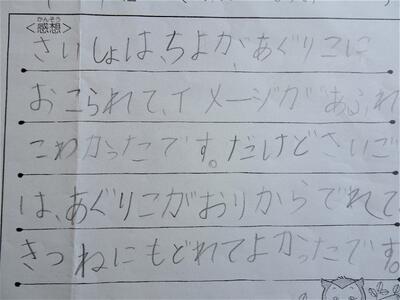 <感想>
かんそう
さいしょは、ちよが、あぐりこに
おこられて、イメージがあふれ
こわかったです。だけどさいご
は、あぐりこがおりからでれて、
きつねにもどれてよかったです。